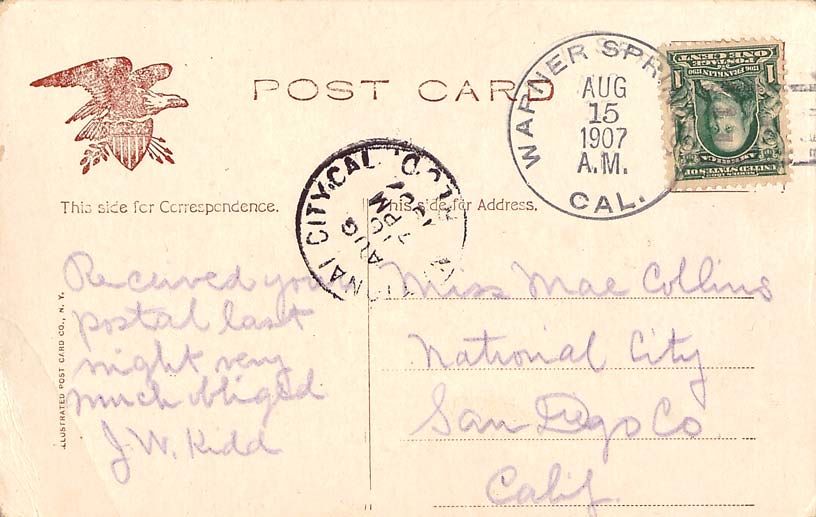 POST CARD
WARNER SPR
AUG
15
1907
A.M.
CAL.
ONE CENT
POSTAGE
1 1
This side for Correspondence.
This side for Address.
NAL CITY, CAL.
AUG
7 PM
REC'D.
Received your
postal last
night very
much obliged
J. W. Kidd
Miss Mae Collins
National City
San Diego Co
Calif.
ILLUSTRATED POST CARD CO., N. Y.